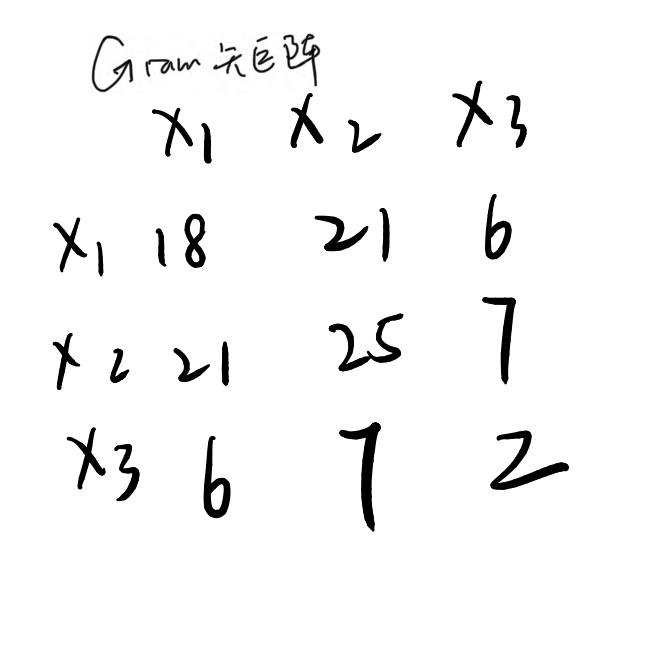 Gram矩阵
x1 x2 x3
x1 18 21 6
x2 21 25 7
x3 6 7 2